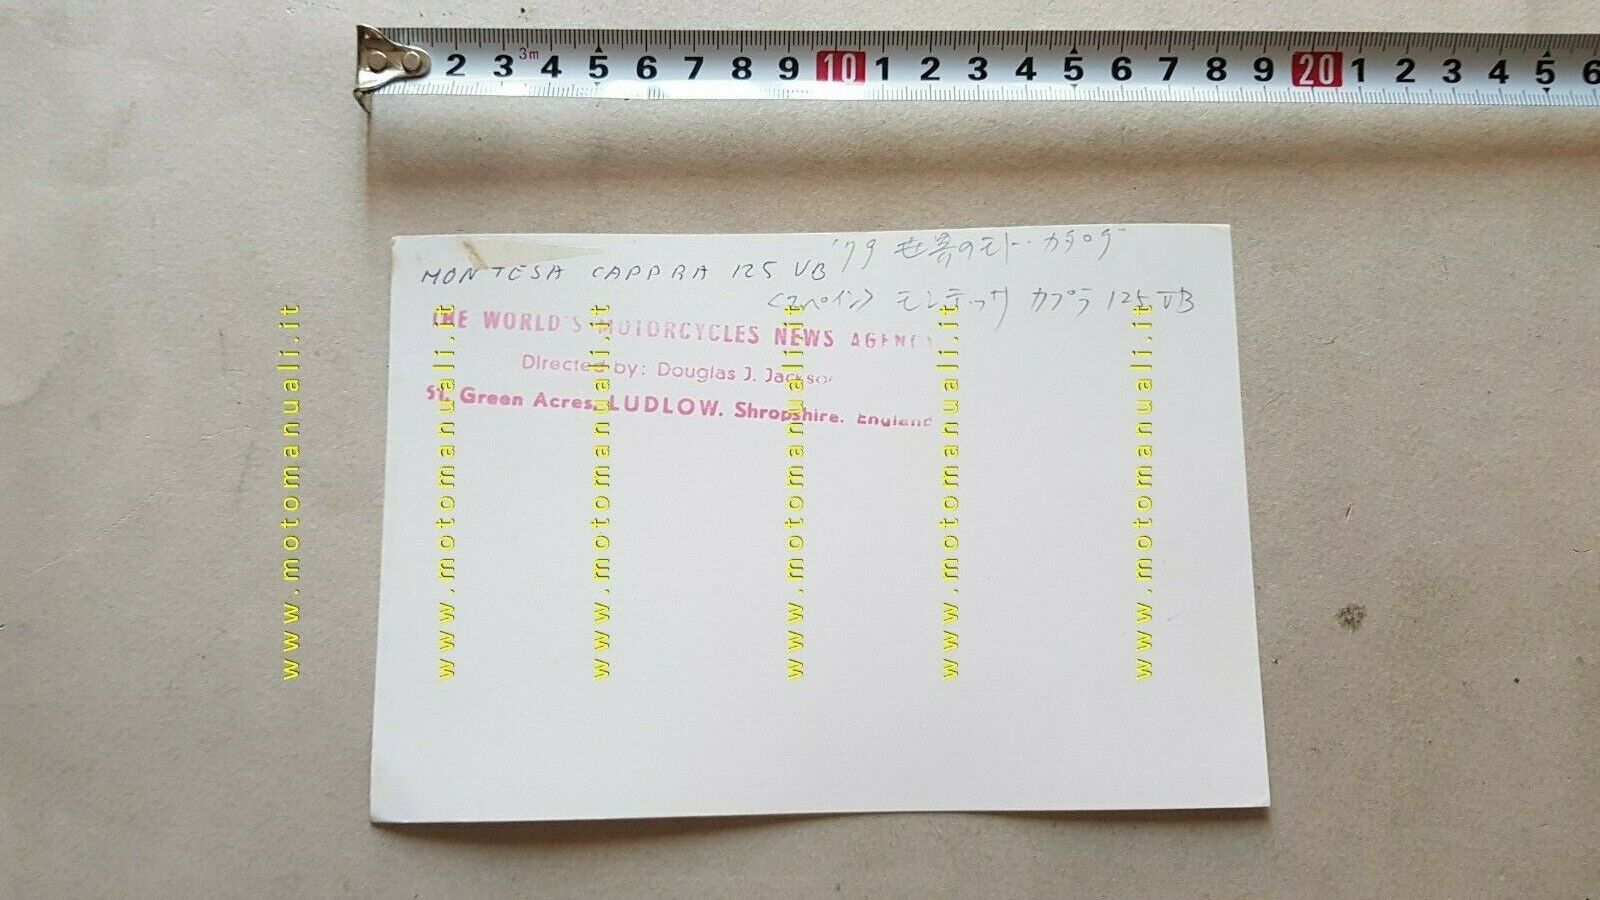 2 3 3m 4 5 6 7 8 9 10 1 2 3 4 5 6 7 8 9 20 1 2 3 4 5 6
'79 世界のモーターカタログ
MONTESA CAPPRA 125 VB
<スペイン> モンテッサ カプラ 125 VB
THE WORLD'S MOTORCYCLES NEWS AGENCY
Directed by: Douglas J. Jackson
St. Green Acres, LUDLOW. Shropshire. England
www.motomanuali.it
www.motomanuali.it
www.motomanuali.it
www.motomanuali.it
www.motomanuali.it
www.motomanuali.it